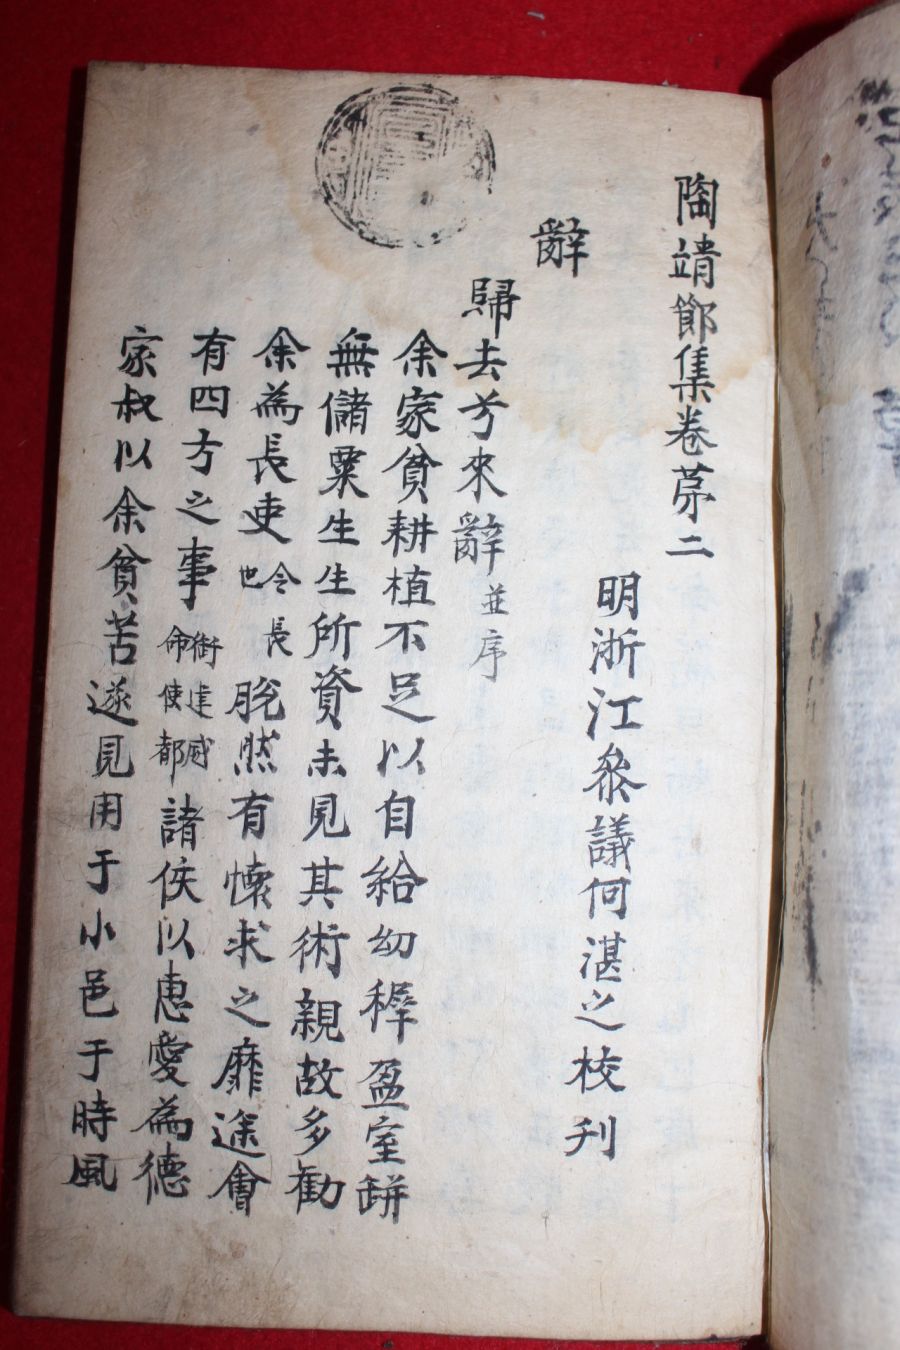 陶靖節集卷苐二
明浙江叅議何湛之校刋
辭
歸去兮來辭並序
余家貧耕植不足以自給幼稺盈室缾
無儲粟生生所資未見其術親故多勸
余為長吏令長也脫然有懷求之靡途會
有四方之事衘建威命使都諸侯以惠愛為德
家叔以余貧苦遂見用于小邑于時風